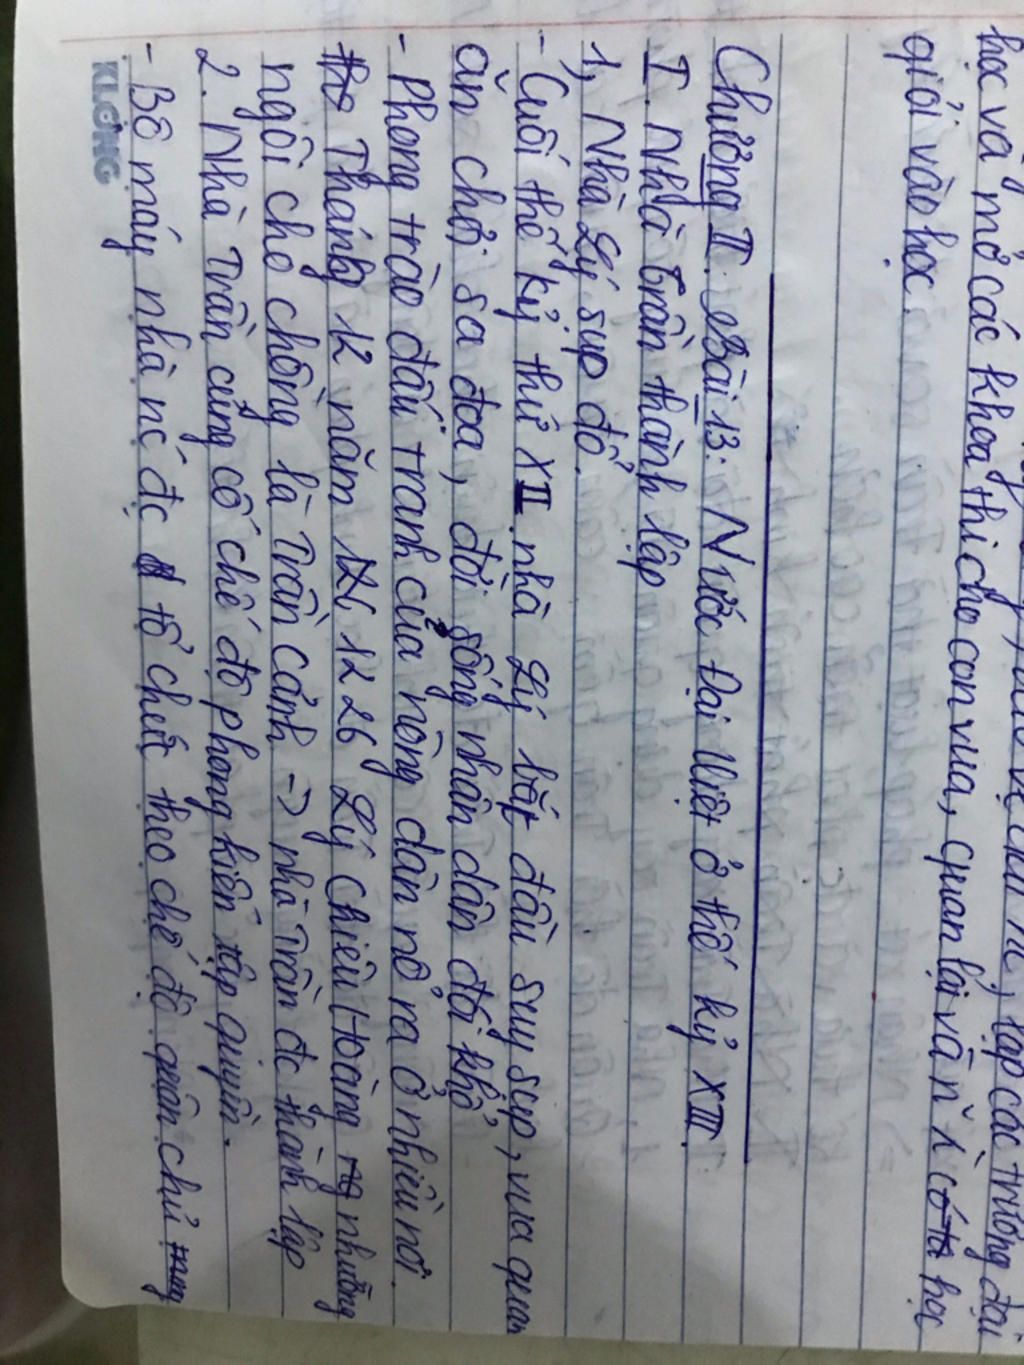 học và mở các khoa thi cho con vua, quan lại và n` ` có học
giỏi vào học.
Chương II. Bài 13: Nước Đại Việt ở thế kỷ XIII.
I. Nhà Trần thành lập
1, Nhà Lý sụp đổ.
- Cuối thế kỷ thứ XII nhà Lý bắt đầu suy sụp, vua quan
ăn chơi sa đoạ, đời sống nhân dân đói khổ
- Phong trào đấu tranh của nông dân nổ ra ở nhiều nơi.
Tháng 12 năm 1226 Lý Chiêu Hoàng nhường
ngôi cho chồng là Trần Cảnh -> nhà Trần đc thành lập
2. Nhà Trần củng cố chế độ phong kiến tập quyền.
- Bộ máy nhà nc đc tổ chức theo chế độ quân chủ trung
KLONG